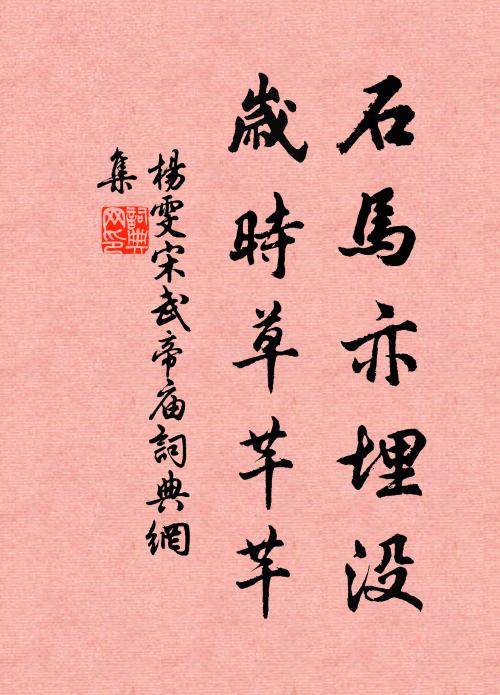 石馬亦埋没
歲時草芊芊
楊雯宋武帝庙詞典網
集
詞典網印